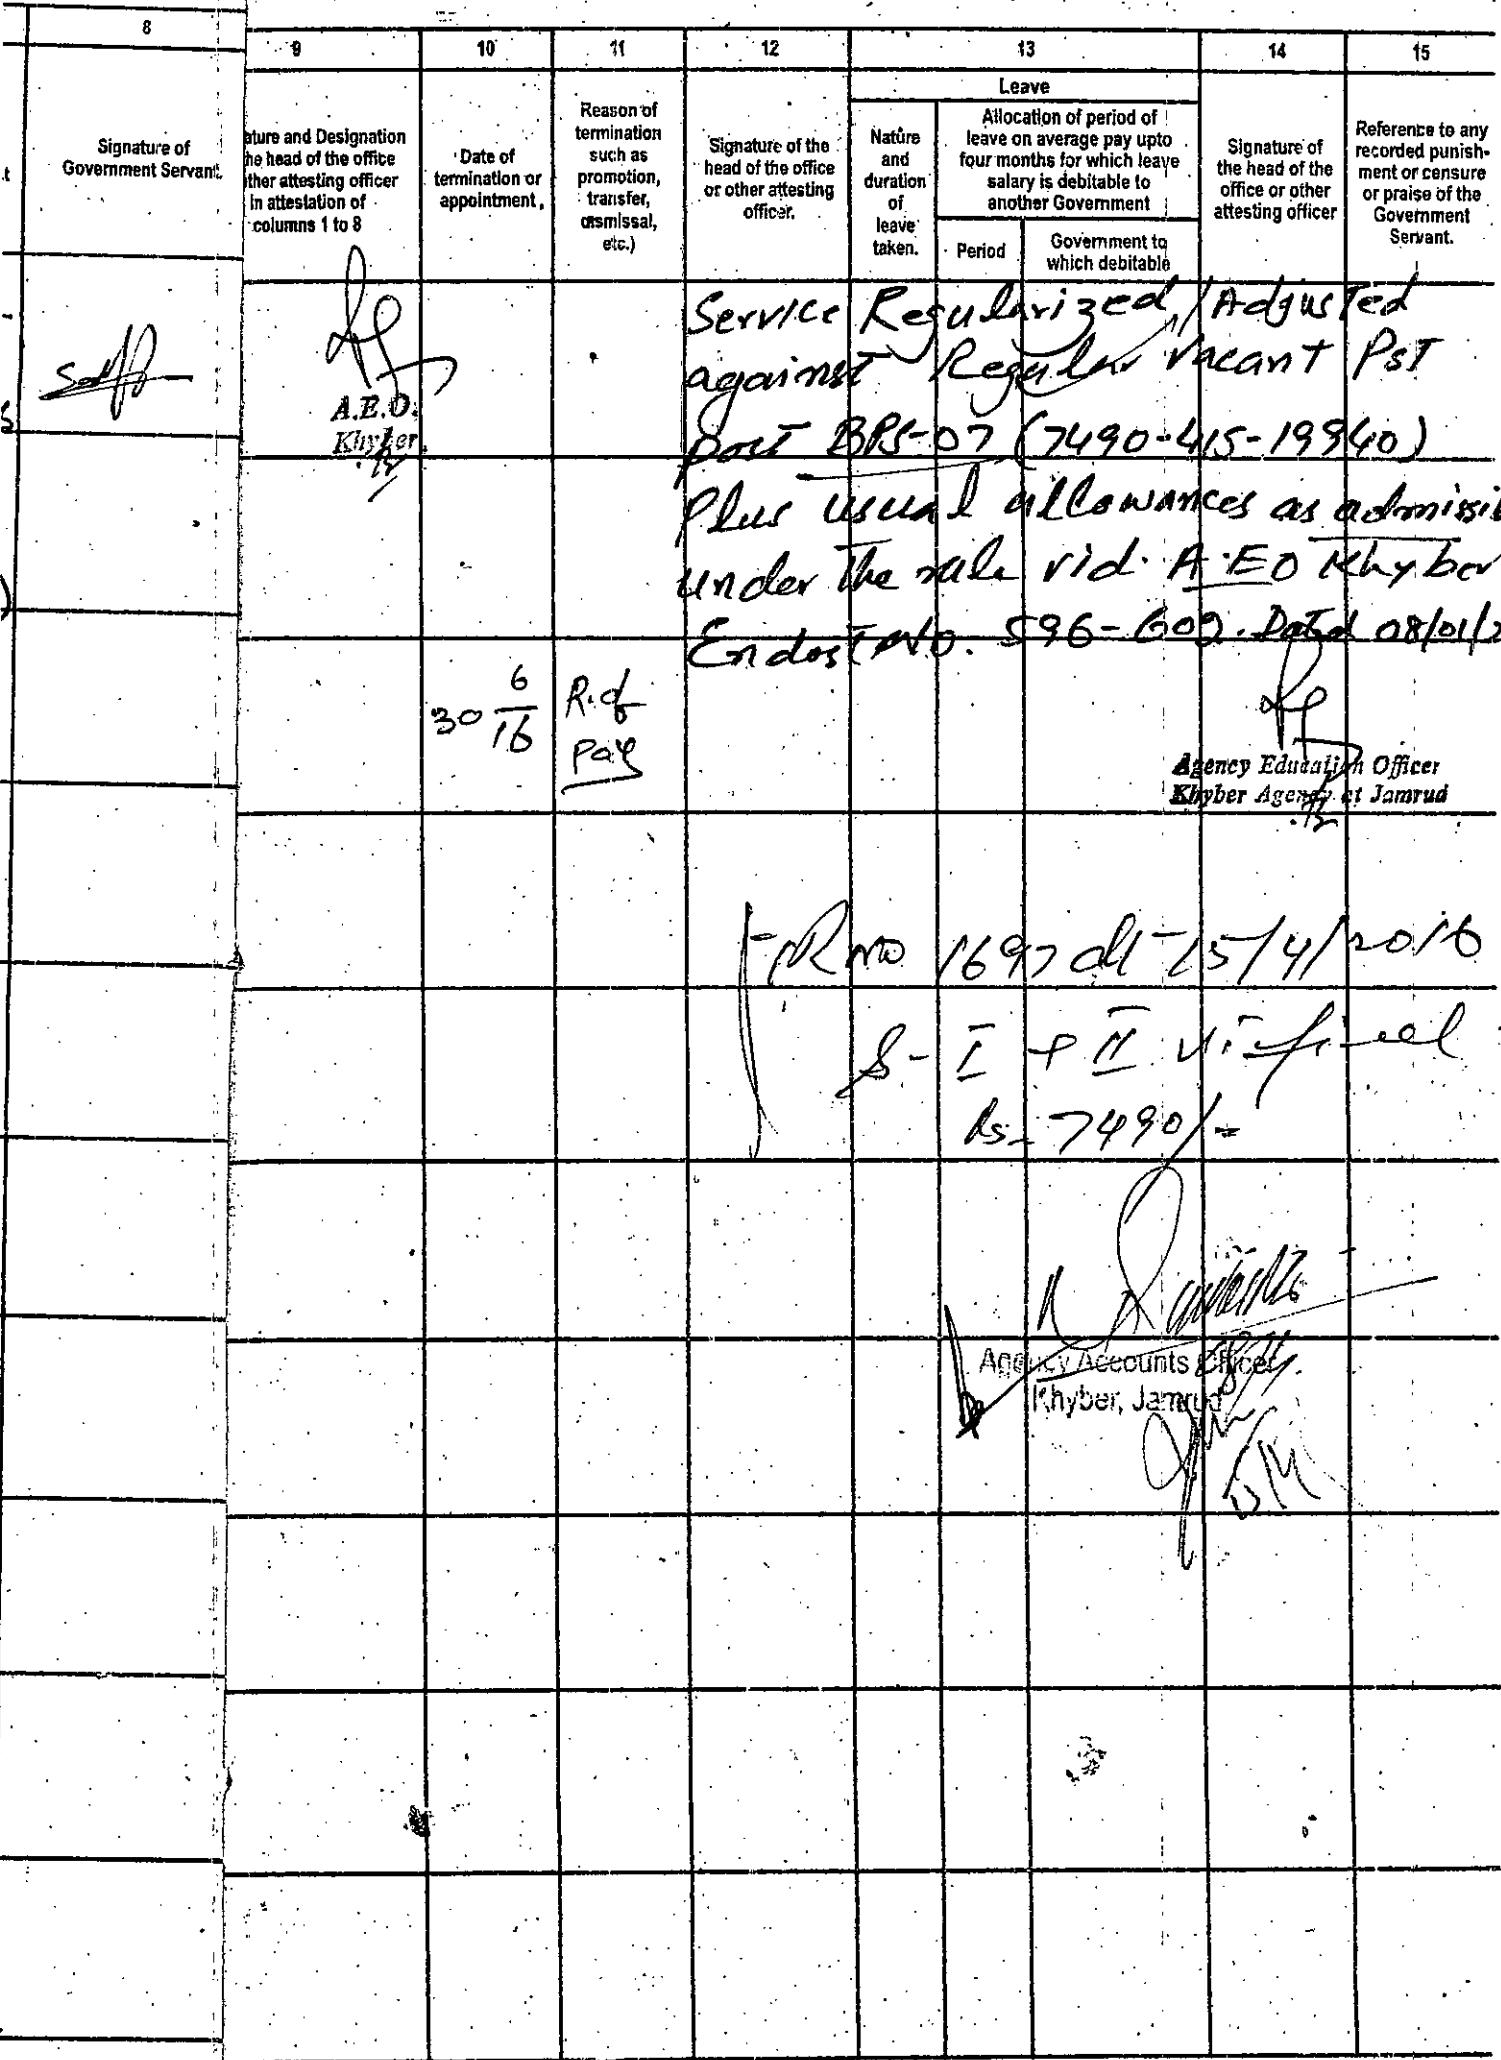 8
9
10
11
12
13
14
15
Signature of
Government Servant.
ature and Designation
he head of the office
ther attesting officer
in attestation of
columns 1 to 8
Date of
termination or
appointment,
Reason of
termination
such as
promotion,
transfer,
dismissal,
etc.)
Signature of the
head of the office
or other attesting
officer.
Leave
Nature
and
duration
of
leave
taken.
Allocation of period of
leave on average pay upto
four months for which leave
salary is debitable to
another Government
Period
Government to
which debitable
Signature of
the head of the
office or other
attesting officer
Reference to any
recorded punish-
ment or censure
or praise of the
Government
Servant.
A.E.O.
Khyber.
Service Regularized/Adjusted
against Regular vacant PST
post BPS-07 (7490-415-19940)
Plus usual allowances as admissi
under the rule vid. A.EO Khyber
Endost No. 596-602. Dated 08/01/2
30 6/16
R.of
Pay
Agency Education Officer
Khyber Agency at Jamrud
no 1697 dt 15/4/2016
S-I + II
Rs. 7490/-
Agency Accounts Officer
Khyber, Jamrud